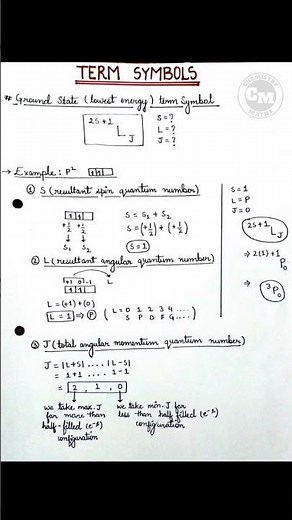 TERM SYMBOLS
CHEMISTRY
CM
# Ground State (lowest energy) term Symbol
2S+1 L J
S=?
L=?
J=?
→ Example: P² 1 1
① S (resultant spin quantum number)
1 1
+1/2 +1/2
↓ ↓
S₁ S₂
S = S₁ + S₂
S = (+1/2) + (+1/2)
S=1
② L (resultant angular quantum number)
+1 0 -1 L
1 1
L = (+1) + (0)
L = 1 ⇒ P
(L = 0 1 2 3 4 ....
S P D F G....)
③ J (total angular momentum quantum number)
J = |L+S| .... |L-S|
= 1+1 .... 1-1
= 2, 1, 0
we take max. J for more than half-filled (e⁻s) configuration
we take min. J for less than half filled (e⁻s) configuration
S = 1
L = P
J = 0
2S+1 L J
⇒ 2(1)+1 P₀
⇒ ³P₀